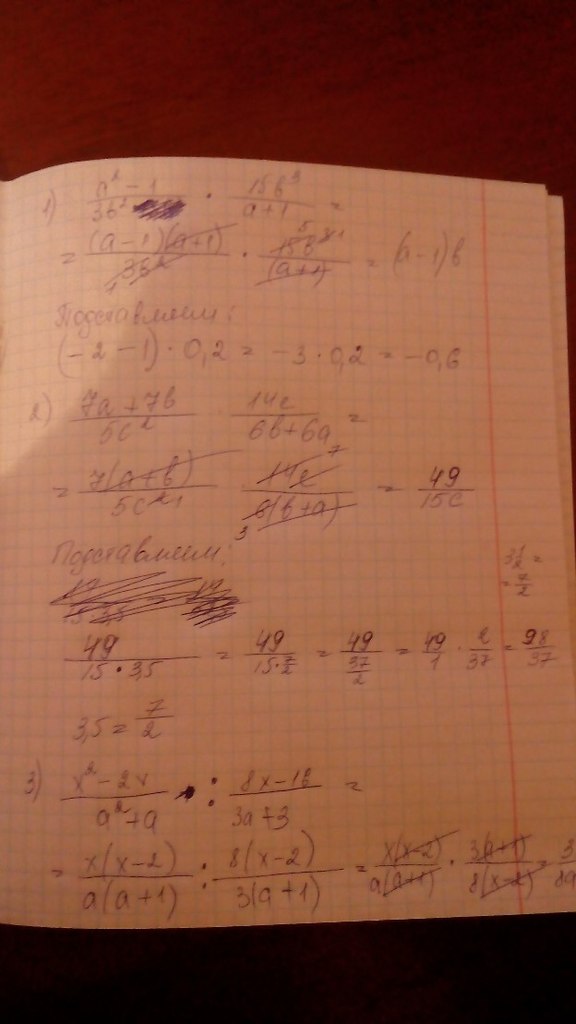 1) (a² - 1)/(3b²) · (15b³)/(a+1) =
= ((a-1)(a+1))/(3b²) · (15b³)/((a+1)) = (a-1)b
Подставляем:
(-2-1)·0,2 = -3·0,2 = -0,6
2) (7a+7b)/(5c²) (14c)/(6b+6a) =
= (7(a+b))/(5c²) (14c)/(6(b+a)) = 49/(15c)
Подставляем:
3½ =
= 7/2
49/(15·3,5) = 49/(15·7/2) = 49/(37/2) = 49/1 · 2/37 = 98/37
3,5 = 7/2
3) (x²-2x)/(a²+a) : (8x-16)/(3a+3) =
= (x(x-2))/(a(a+1)) : (8(x-2))/(3(a+1)) = (x(x-2))/(a(a+1)) · (3(a+1))/(8(x-2)) = 3/8a